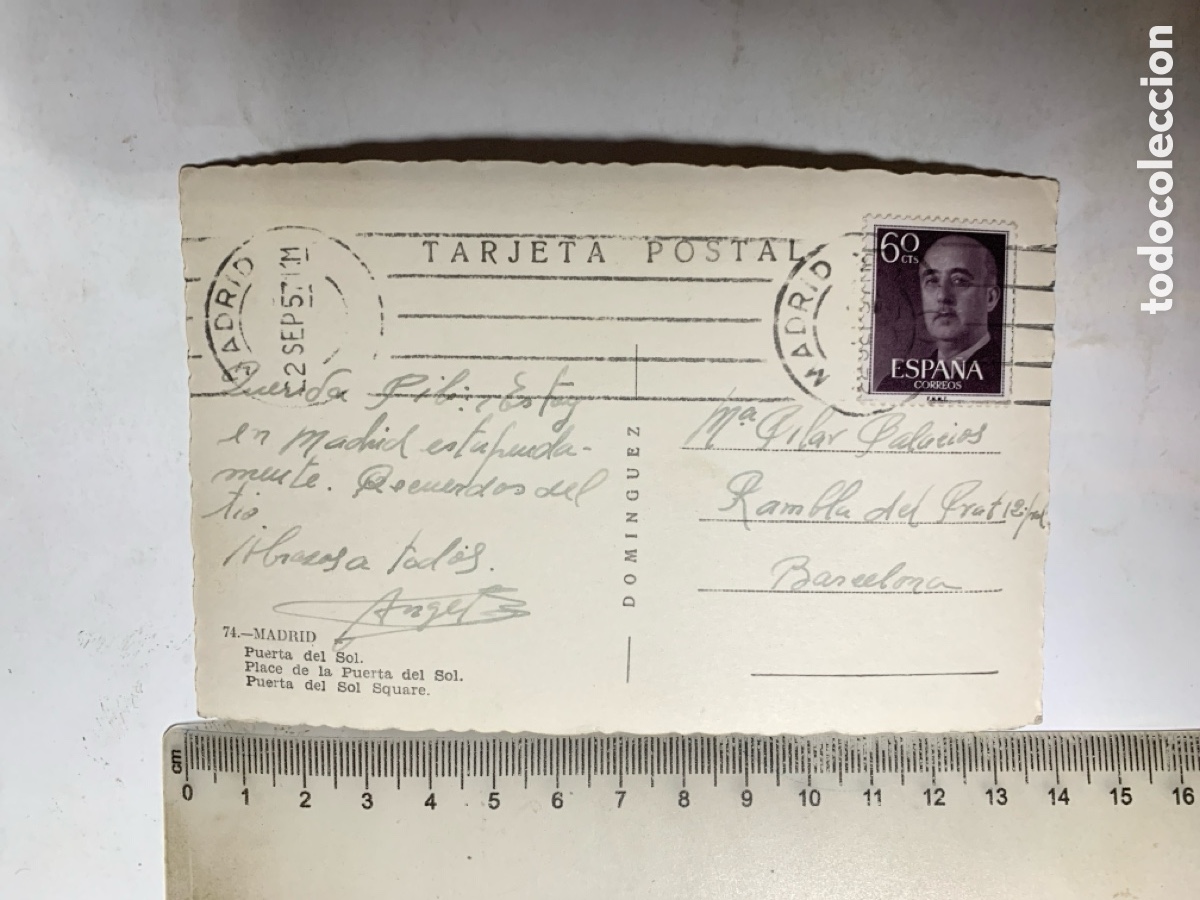 todocoleccion
TARJETA POSTAL
MADRID
22 SEP 57 11M
MADRID
60
CTS
ESPAÑA
CORREOS
F.N.M.T.
Querida Pili: Estoy
en Madrid estupenda-
mente. Recuerdos del
tio
Abrazos a todos.
Angel
74.—MADRID
Puerta del Sol.
Place de la Puerta del Sol.
Puerta del Sol Square.
DOMINGUEZ
Mª Pilar Palacios
Rambla del Prat 12
Barcelona
cm
0 1 2 3 4 5 6 7 8 9 10 11 12 13 14 15 16